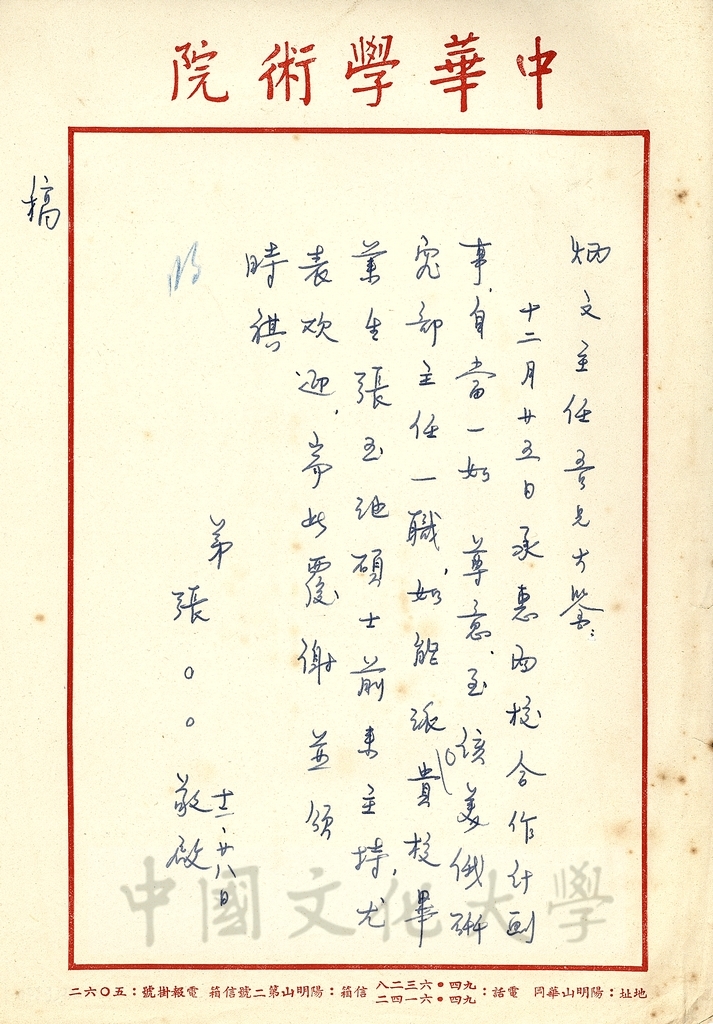 中華學術院
稿
炳文主任吾兄大鑒：
十二月廿五日承惠兩校合作計劃
事，自當一如 尊意。至該美俄研
究部主任一職，如能派貴校畢
業生張玉池碩士前來主持，尤
表欢迎，耑此覆謝 並頌
時祺
弟
張○○敬啟
十二、廿八日
中國文化大學
地址：陽明山華岡 電話：九四•六三二八 九四•六一四二 信箱：陽明山第二號信箱 電報掛號：五〇六二